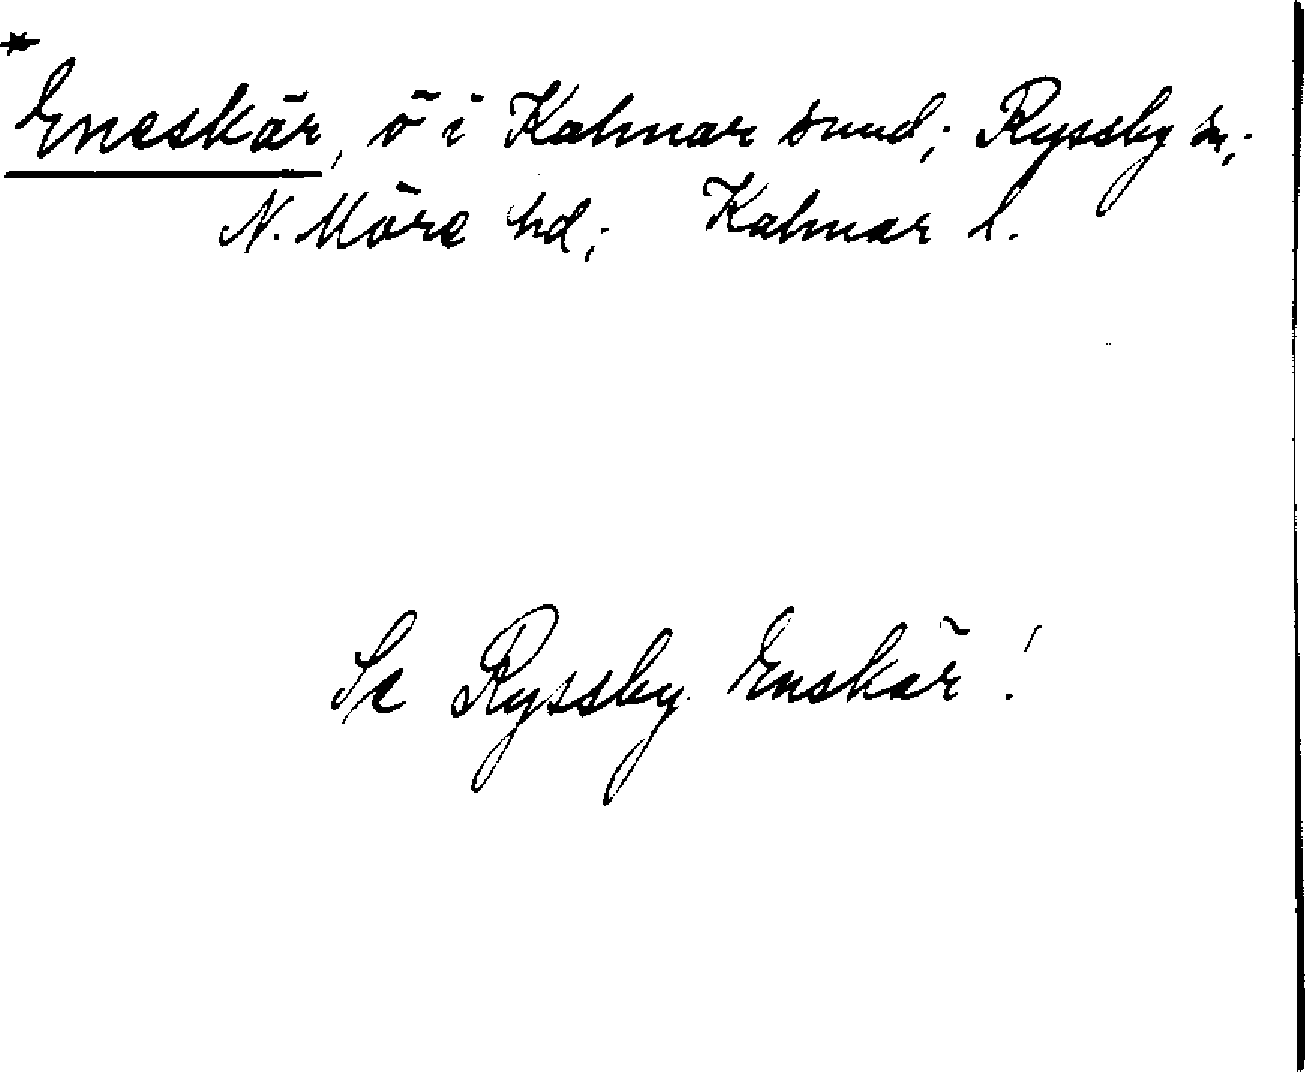 *
Eneskär, ö i Kalmar sund; Ryssby sn;
N. Möre hd; Kalmar l.
Se Ryssby Enskär!